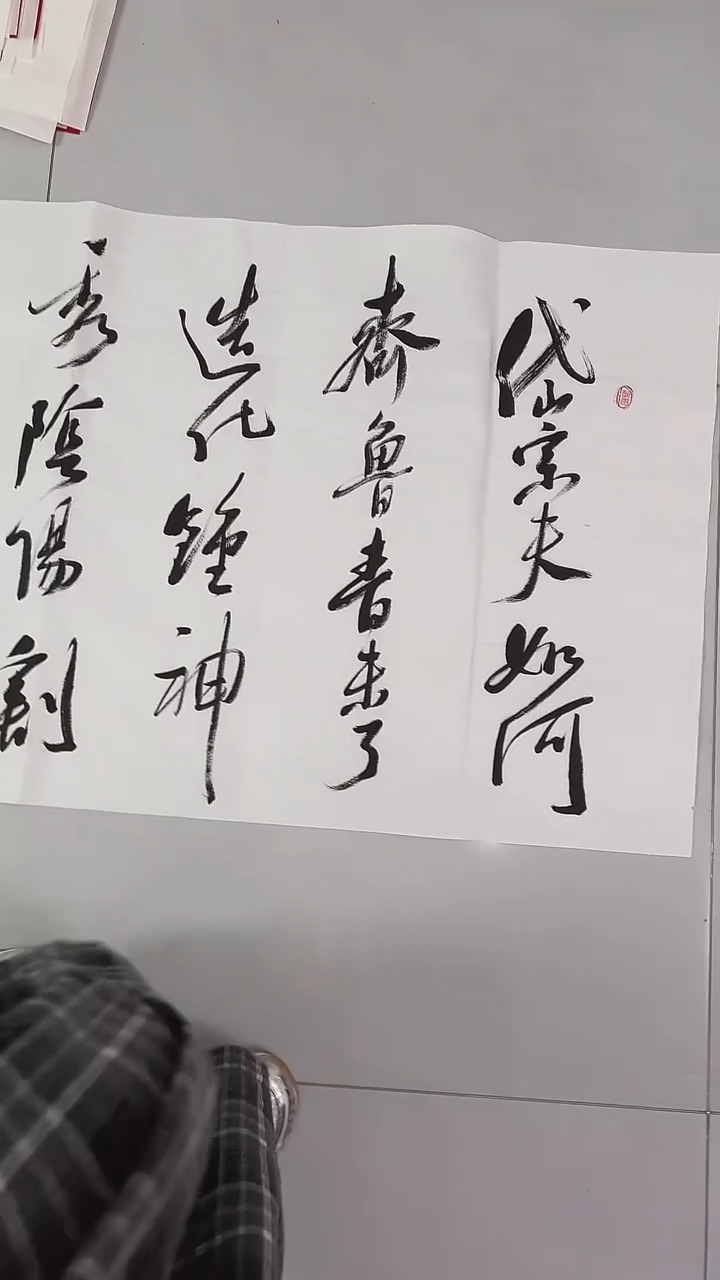 岱宗夫如何
齊魯青未了
造化鍾神
秀陰陽割